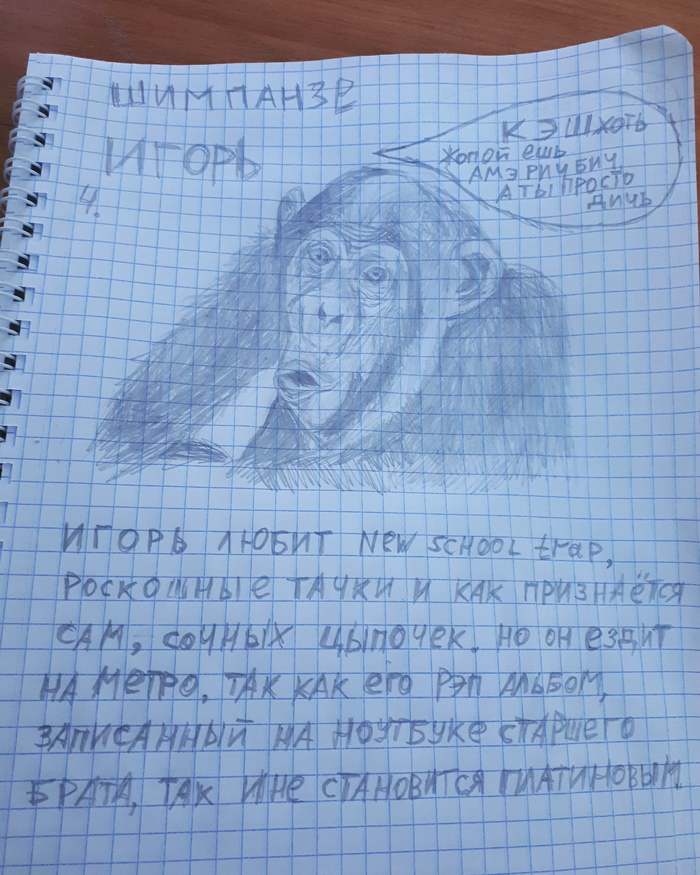 ШИМПАНЗЕ
ИГОРЬ
4.
КЭШ ХОТЬ
ЖОПОЙ ЕШЬ
АМЭРИЧБИЧ
А ТЫ ПРОСТО
ДИЧЬ
ИГОРЬ ЛЮБИТ NEW SCHOOL trap,
РОСКОШНЫЕ ТАЧКИ И КАК ПРИЗНАЁТСЯ
САМ, СОЧНЫХ ЦЫПОЧЕК. НО ОН ЕЗДИТ
НА МЕТРО, ТАК КАК ЕГО РЭП АЛЬБОМ,
ЗАПИСАННЫЙ НА НОУТБУКЕ СТАРШЕГО
БРАТА, ТАК И НЕ СТАНОВИТСЯ ПЛАТИНОВЫМ.